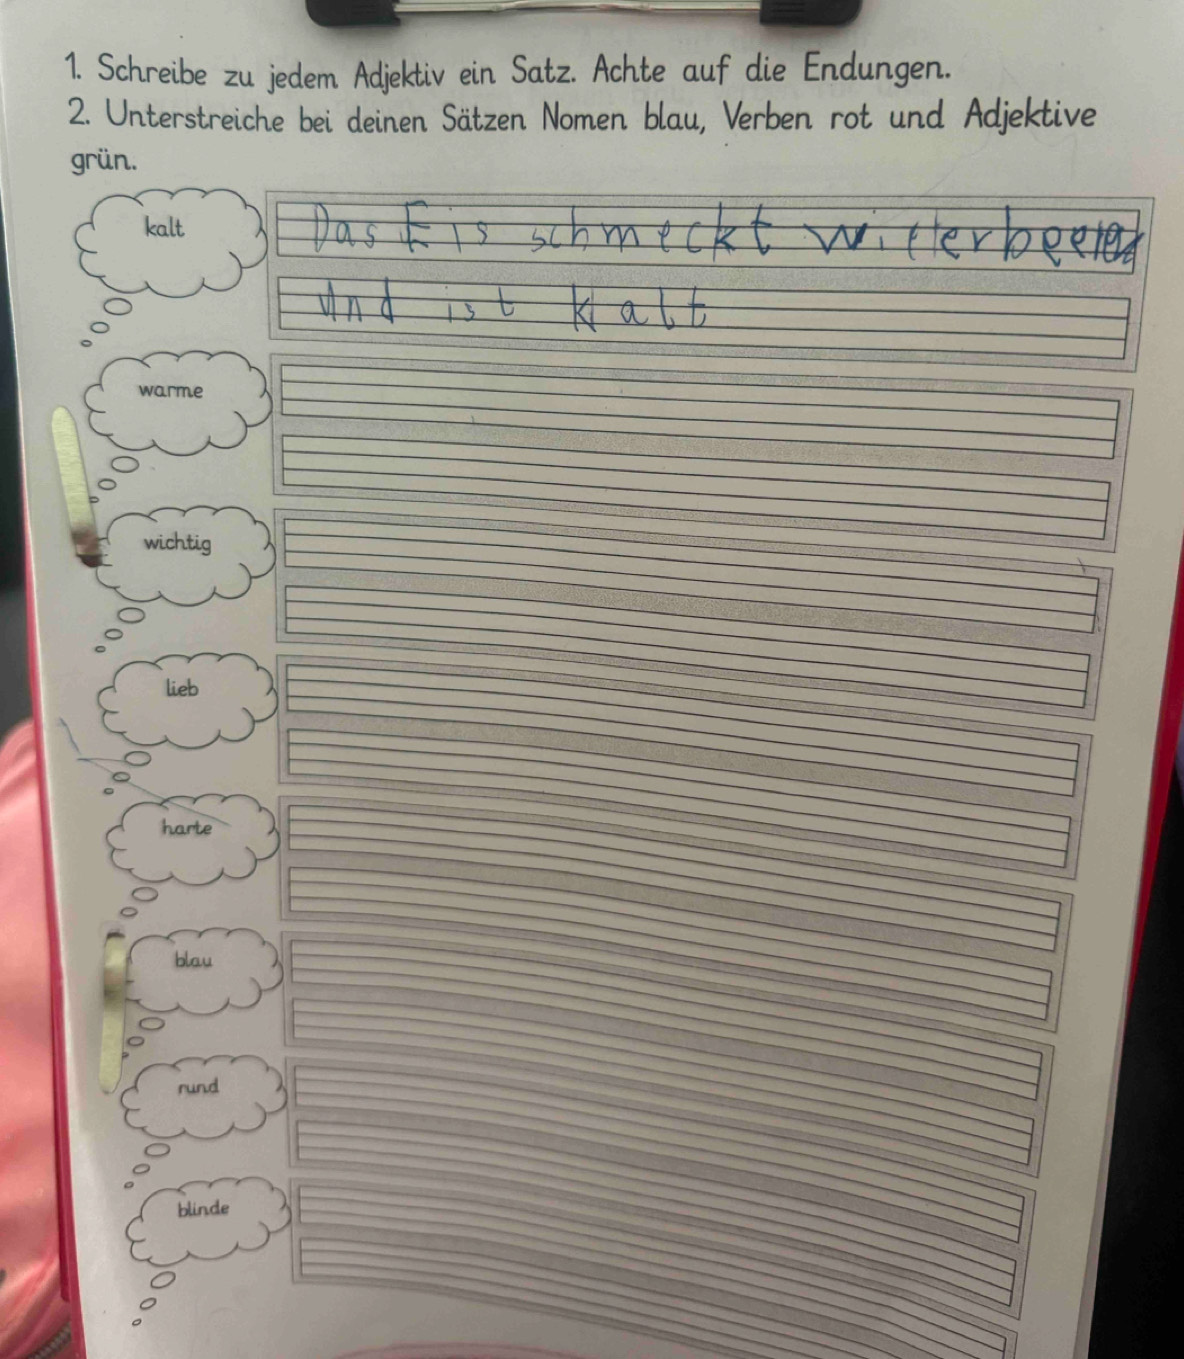 1. Schreibe zu jedem Adjektiv ein Satz. Achte auf die Endungen.
2. Unterstreiche bei deinen Sätzen Nomen blau, Verben rot und Adjektive
grün.
kalt
Das Eis schmeckt
und ist kalt
warme
wichtig
lieb
harte
blau
rund
blinde